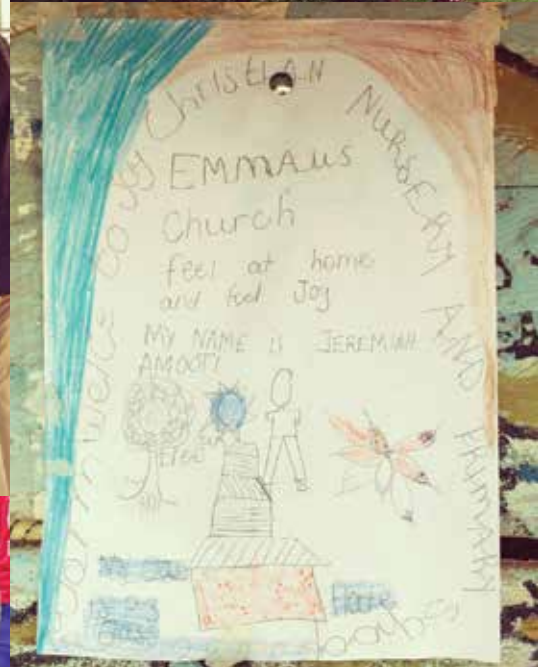 JOY Christian NURSERY AND PRIMARY
EMMAUS
Church
feel at home
and feel Joy
MY NAME IS JEREMIAH
AMOOTI